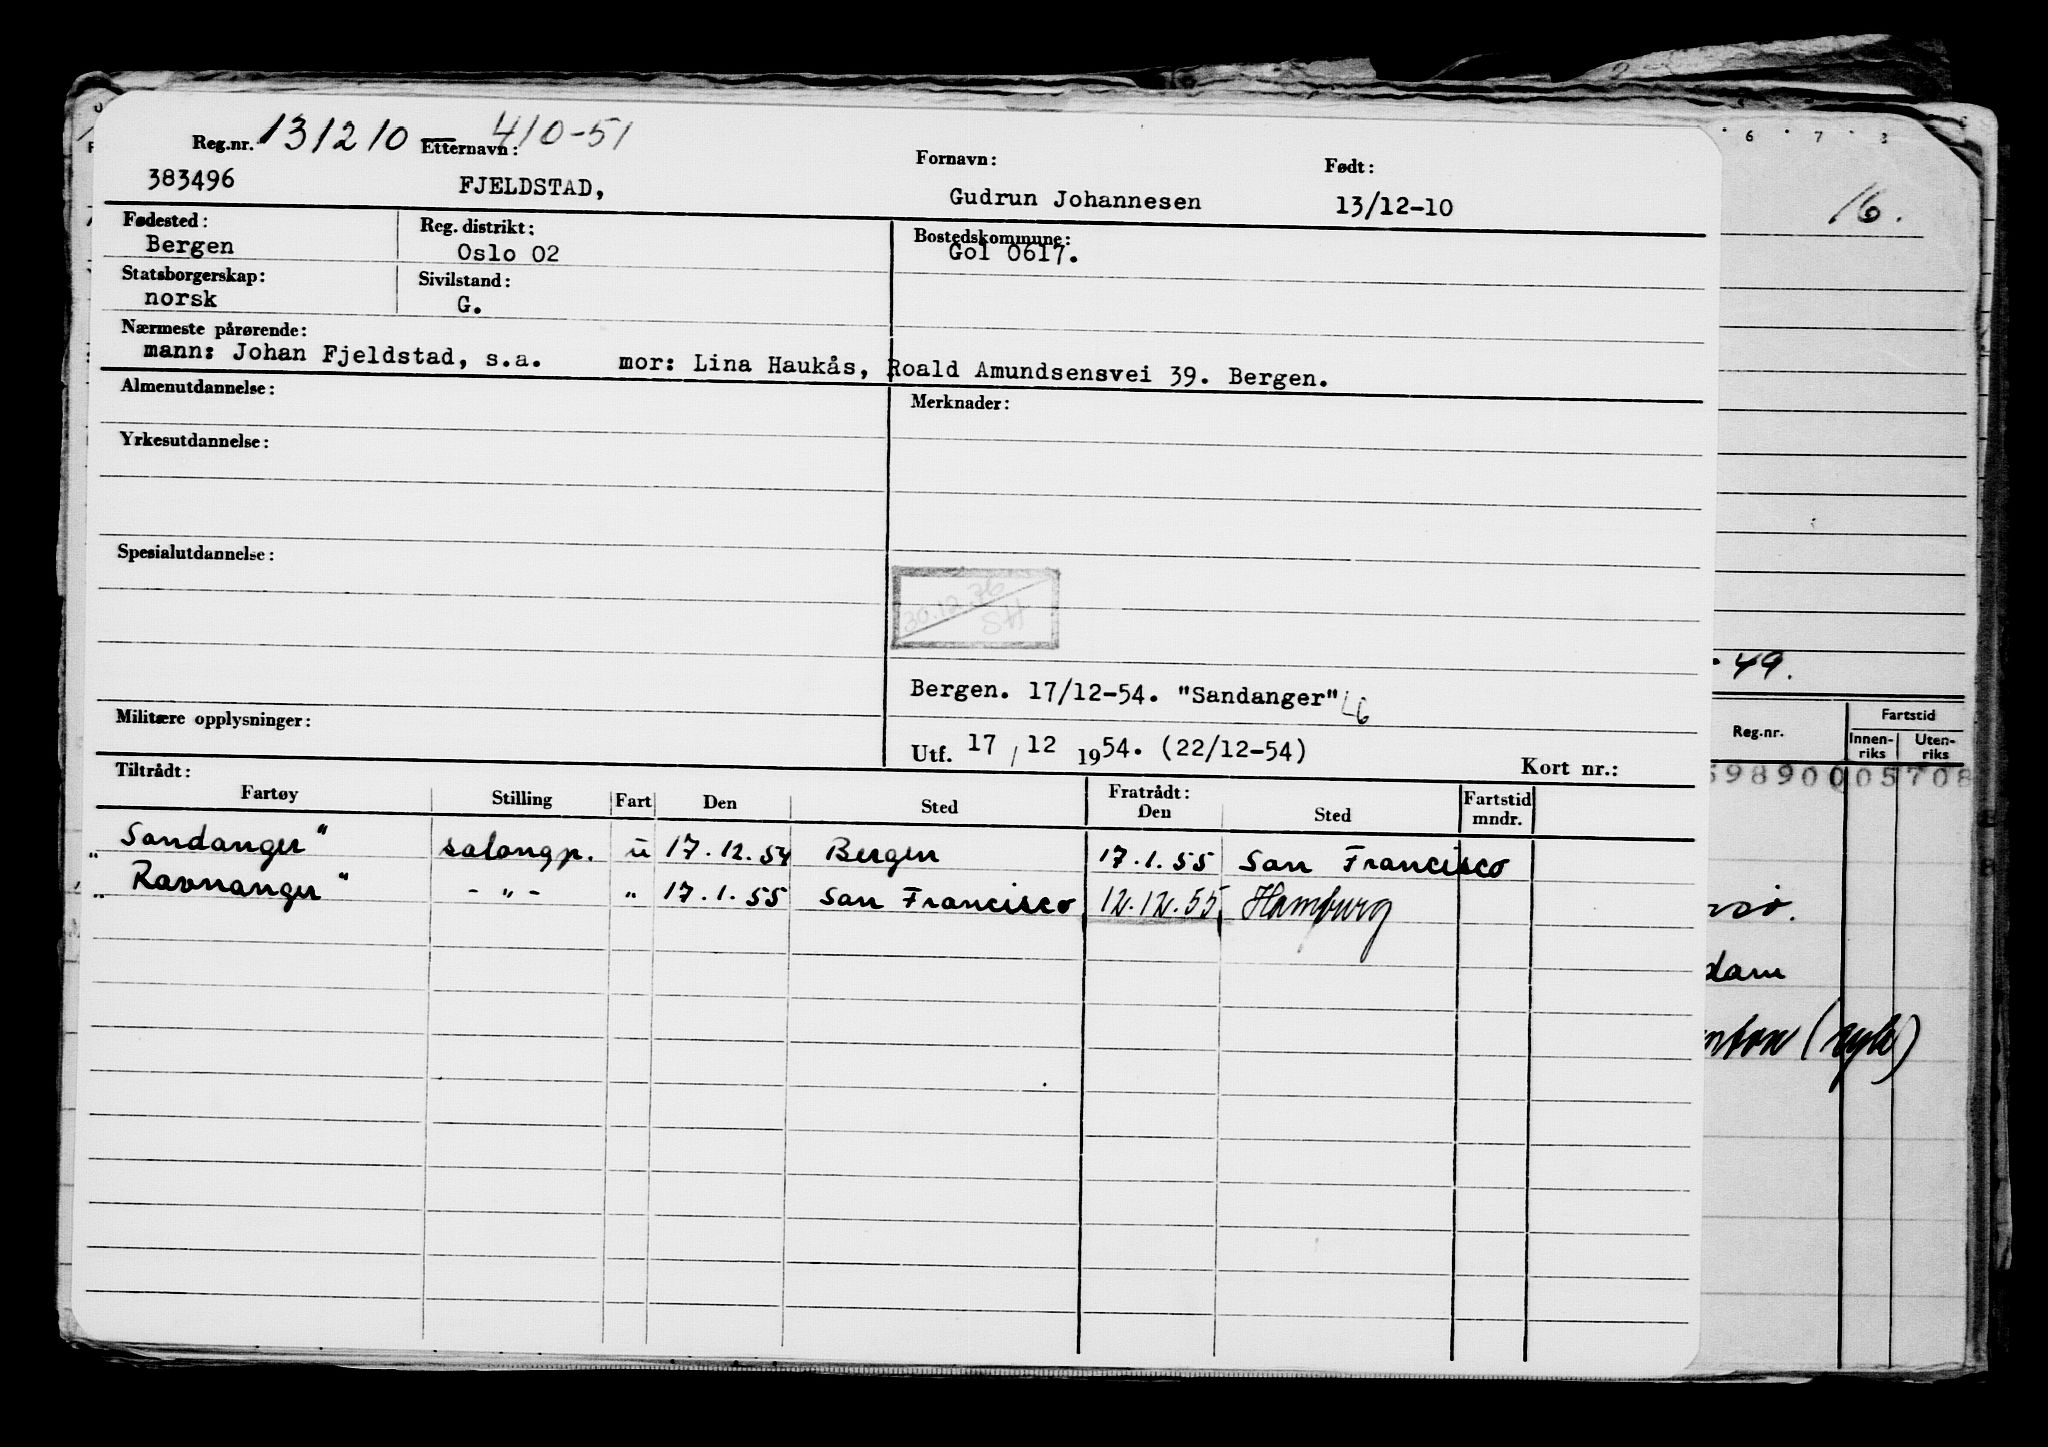 131210 410-51
Reg.nr. Etternavn: Fornavn: Født:
383496 FJELDSTAD, Gudrun Johannesen 13/12-10
Fødested: Reg. distrikt: Bostedskommune:
Bergen Oslo 02 Gol 0617.
Statsborgerskap: Sivilstand:
norsk G.
Nærmeste pårørende:
mann: Johan Fjeldstad, s.a. mor: Lina Haukås, Roald Amundsensvei 39. Bergen.
Almenutdannelse: Merknader:
Yrkesutdannelse:
Spesialutdannelse:
30.12.76
SH
Bergen. 17/12-54. "Sandanger"
Militære opplysninger:
Utf. 17 / 12 1954. (22/12-54) Kort nr.:
Tiltrådt: Fratrådt:
Fartøy Stilling Fart Den Sted Den Sted Fartstid mndr.
"Sandanger" salongp. u 17.12.54 Bergen 17.1.55 San Francisco
"Ravnanger" - " - " 17.1.55 San Francisco 12.12.55 Hamburg
6 7 8
16.
49.
Reg.nr. Fartstid
Innen-riks Uten-riks
98900 05708
dam